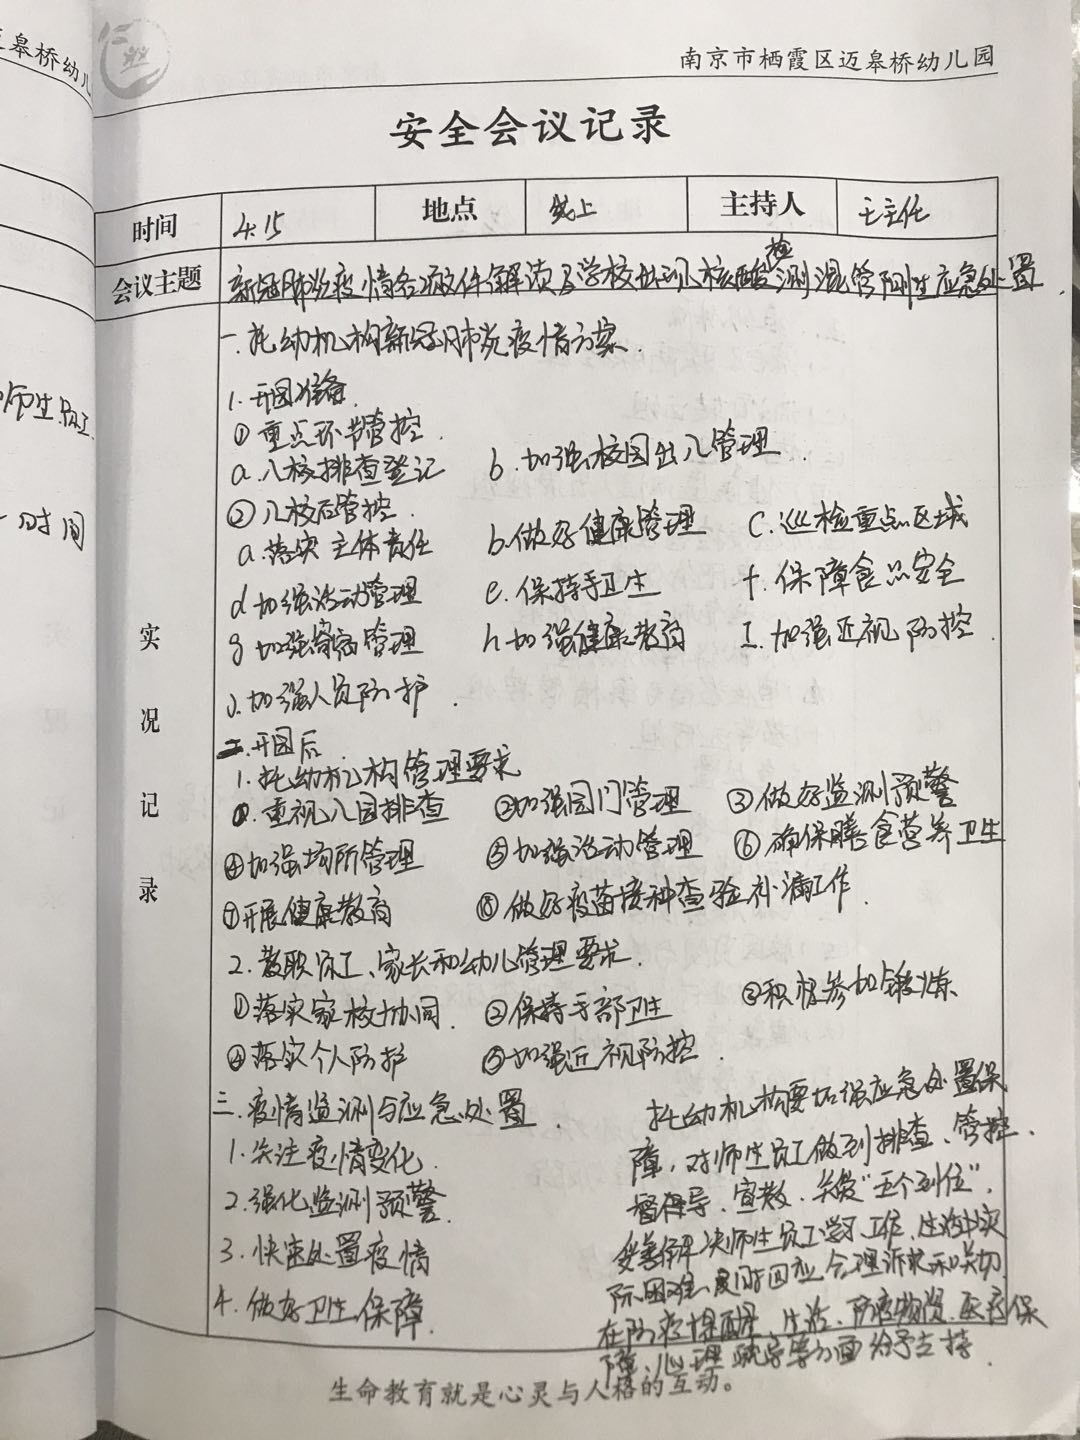 皋桥幼儿
师生员工
时间
南京市栖霞区迈皋桥幼儿园
安全会议记录
时间 4.15 地点 线上 主持人 王主任
会议主题 新冠肺炎疫情各项文件解读及学校培训核酸检测混管阳性应急处置
实况记录
一.托幼机构新冠肺炎疫情方案.
1.开园准备.
①重点环节管控.
a.入校排查登记 b.加强校园出入管理.
②入校后管控.
a.落实主体责任 b.做好健康管理 C.巡检重点区域
d加强活动管理 e.保持手卫生 f.保障食品安全
g加强宿舍管理 h加强健康教育 I.加强近视防控
J.加强人员防护.
二.开园后
1.托幼机构管理要求
①.重视入园排查 ②加强园门管理 ③做好监测预警
④加强场所管理 ⑤加强活动管理 ⑥确保膳食营养卫生
⑦开展健康教育 ⑧做好疫苗接种查验补漏工作.
2.教职员工、家长和幼儿管理要求.
①落实家校协同. ②保持手部卫生 ③积极参加锻炼
④落实个人防护 ⑤加强近视防控.
三.疫情监测与应急处置.
1.关注疫情变化.
2.强化监测预警.
3.快速处置疫情
4.做好卫生保障.
托幼机构要加强应急处置保
障,对师生员工做到排查、管控、
督导、宣教、关爱“五个到位”.
妥善解决师生员工学习、工作、生活中实
际困难、及时回应合理诉求和关切.
在防疫提醒、生活、防疫物资、医疗保
障、心理疏导等方面给予支持.
生命教育就是心灵与人格的互动。